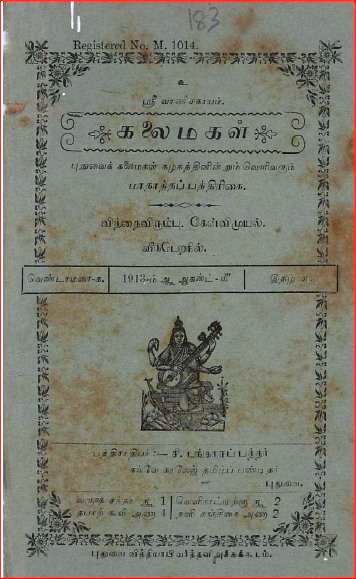 183
Registered No. M. 1014.
உ
ஸ்ரீ வாணி சகாயம்.
கலைமகள்
புதுவைக் கலைமகள் கழகத்தினின்றும் வெளிவரும்
மாதாந்தப் பத்திரிகை.
வித்தைவிரும்பு. கேள்விமுயல்.
வீடுபெறநில்.
வெண்டாமரை-க. 1913-ம் ௵ ஆகஸ்ட்-௴ இதழ்
பத்திராதிபர்:— சி. பங்காரு பத்தர்
கல்வே காலேஜ் தமிழ்ப் பண்டிதர்
புதுவை.
வருஷ சந்தா ரூ 1 வெளிநாட்டுக்கு ரூ 2
தபாற் கூலி அணா 4 தனி சஞ்சிகை அணா 2
புதுவை வித்தியாபிவர்த்தனி அச்சுக்கூடம்.